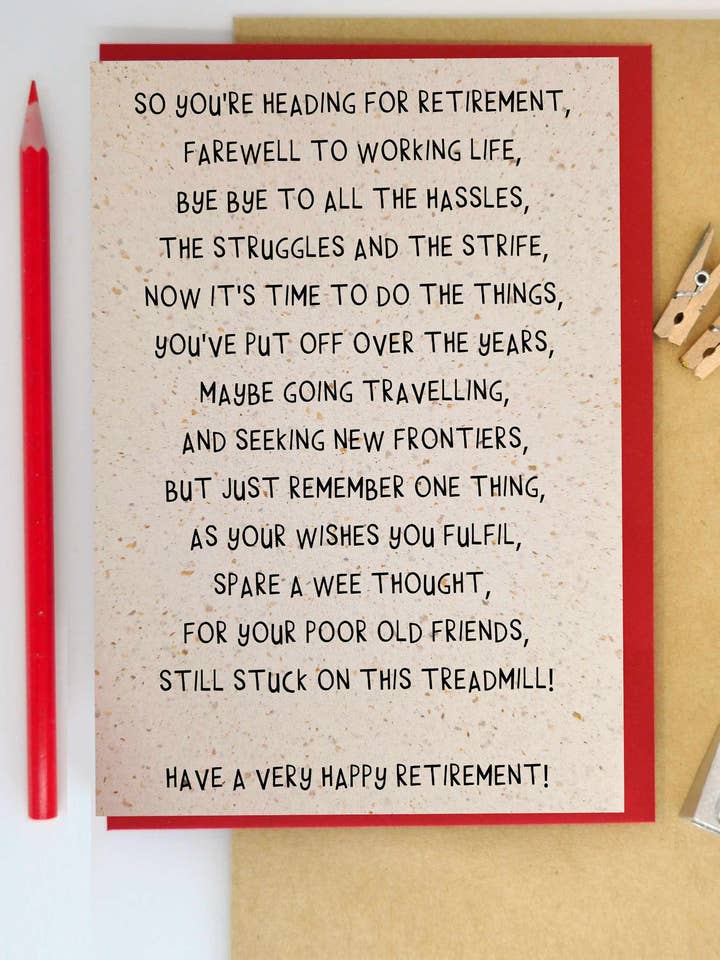 SO YOU'RE HEADING FOR RETIREMENT,
FAREWELL TO WORKING LIFE,
BYE BYE TO ALL THE HASSLES,
THE STRUGGLES AND THE STRIFE,
NOW IT'S TIME TO DO THE THINGS,
YOU'VE PUT OFF OVER THE YEARS,
MAYBE GOING TRAVELLING,
AND SEEKING NEW FRONTIERS,
BUT JUST REMEMBER ONE THING,
AS YOUR WISHES YOU FULFIL,
SPARE A WEE THOUGHT,
FOR YOUR POOR OLD FRIENDS,
STILL STUCK ON THIS TREADMILL!
HAVE A VERY HAPPY RETIREMENT!